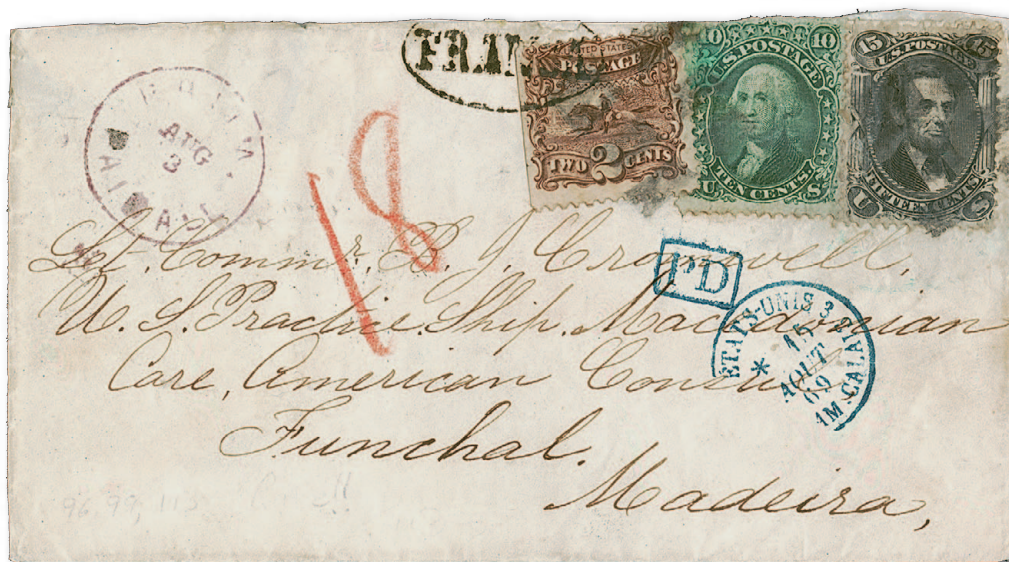 AUG
3
FRAN
UNITED STATES
POSTAGE
TWO 2 CENTS
10 10
U.S. POSTAGE
U TEN CENTS S
15 15
U.S. POSTAGE
U FIFTEEN CENTS S
18
PD
ETATS-UNIS 3 AM. CALAIS
15
AOUT
69
Lt. Commr. B. J. Cromwell,
U. S. Practice Ship. Macedonian
Care, American Consul
Funchal.
Madeira,
96.99,